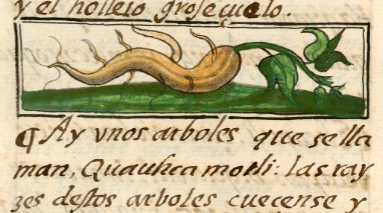 y el hollejo grosezuelo.
¶ Ay vnos arboles que se lla
man, Quauhcamotli: las ray
zes destos arboles cuecense y